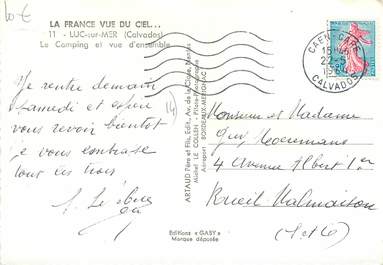 10€
LA FRANCE VUE DU CIEL...
11 - LUC-sur-MER (Calvados)
Le Camping et vue d'ensemble
Je rentre demain
samedi et espère
vous revoir bientôt
je vous embrasse
tous les trois
(14)
ARTAUD Père et Fils Edit., Av. de la Close, Nantes
Michel LE COLLEN - Pilote-Photographe
Aéroport BORDEAUX-MERIGNAC
Editions "GABY"
Marque déposée
CAEN-GARE
CALVADOS
Monsieur et Madame
Guy
4 Avenue Albert 1er
Rueil Malmaison
(S et O)